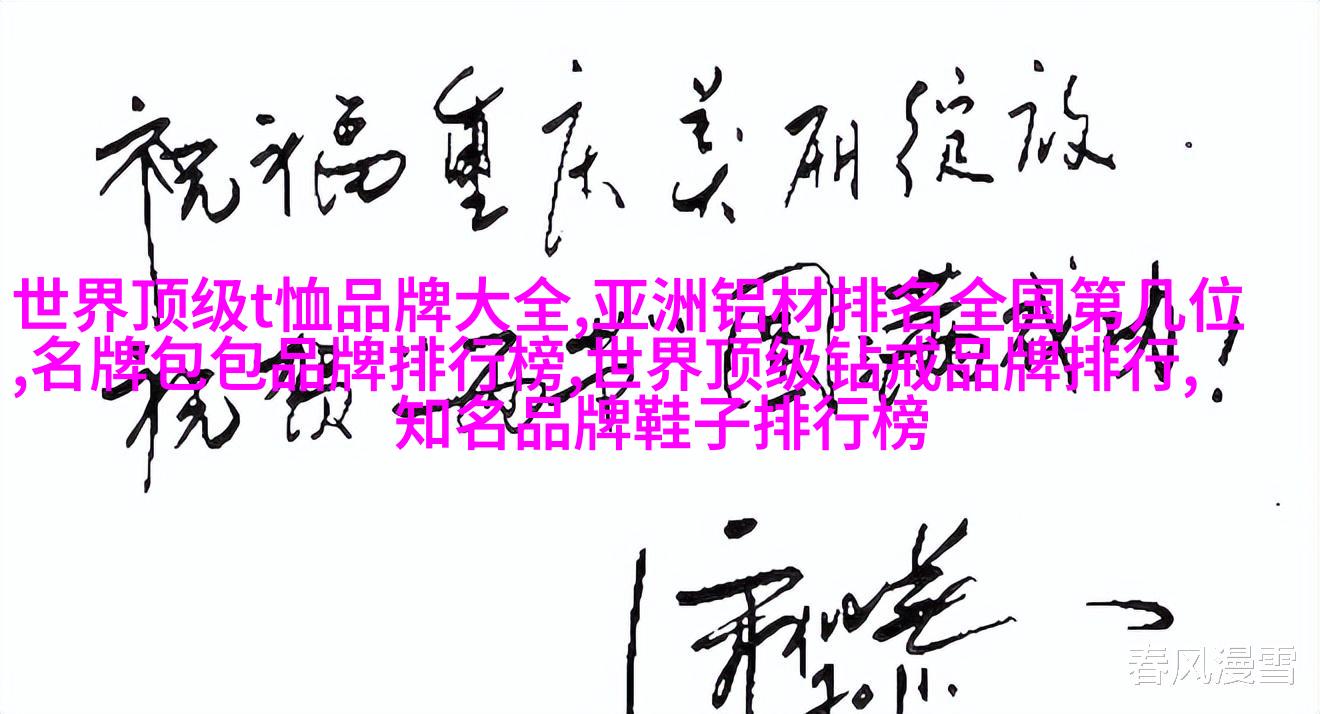 祝福重庆美丽绽放.
世界顶级t恤品牌大全,亚洲铝材排名全国第几位
,名牌包包品牌排行榜,世界顶级钻戒品牌排行,
知名品牌鞋子排行榜
祝
2011.
春风漫雪